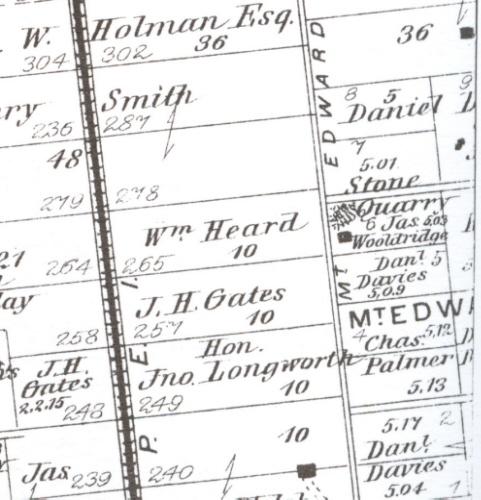 W.
304
Holman Esq.
302 36
EDWARD
36
236
Smith
287
8 5 9
Daniel
48
279
278
7
5.01
Stone
Quarry
6 Jas. 5.03
Wooldridge
Wm Heard
10
264
265
Danl 5
Davies
5.09
MT
J.H. Gates
257 10
MT EDW
4 Chas. 5.12
Palmer
5.13
258
Hon.
Jno. Longworth
249 10
J.H.
Gates
2.2.15
243
P. E. I.
10
240
5.17 2
Danl
Davies
5.04
Jas
239